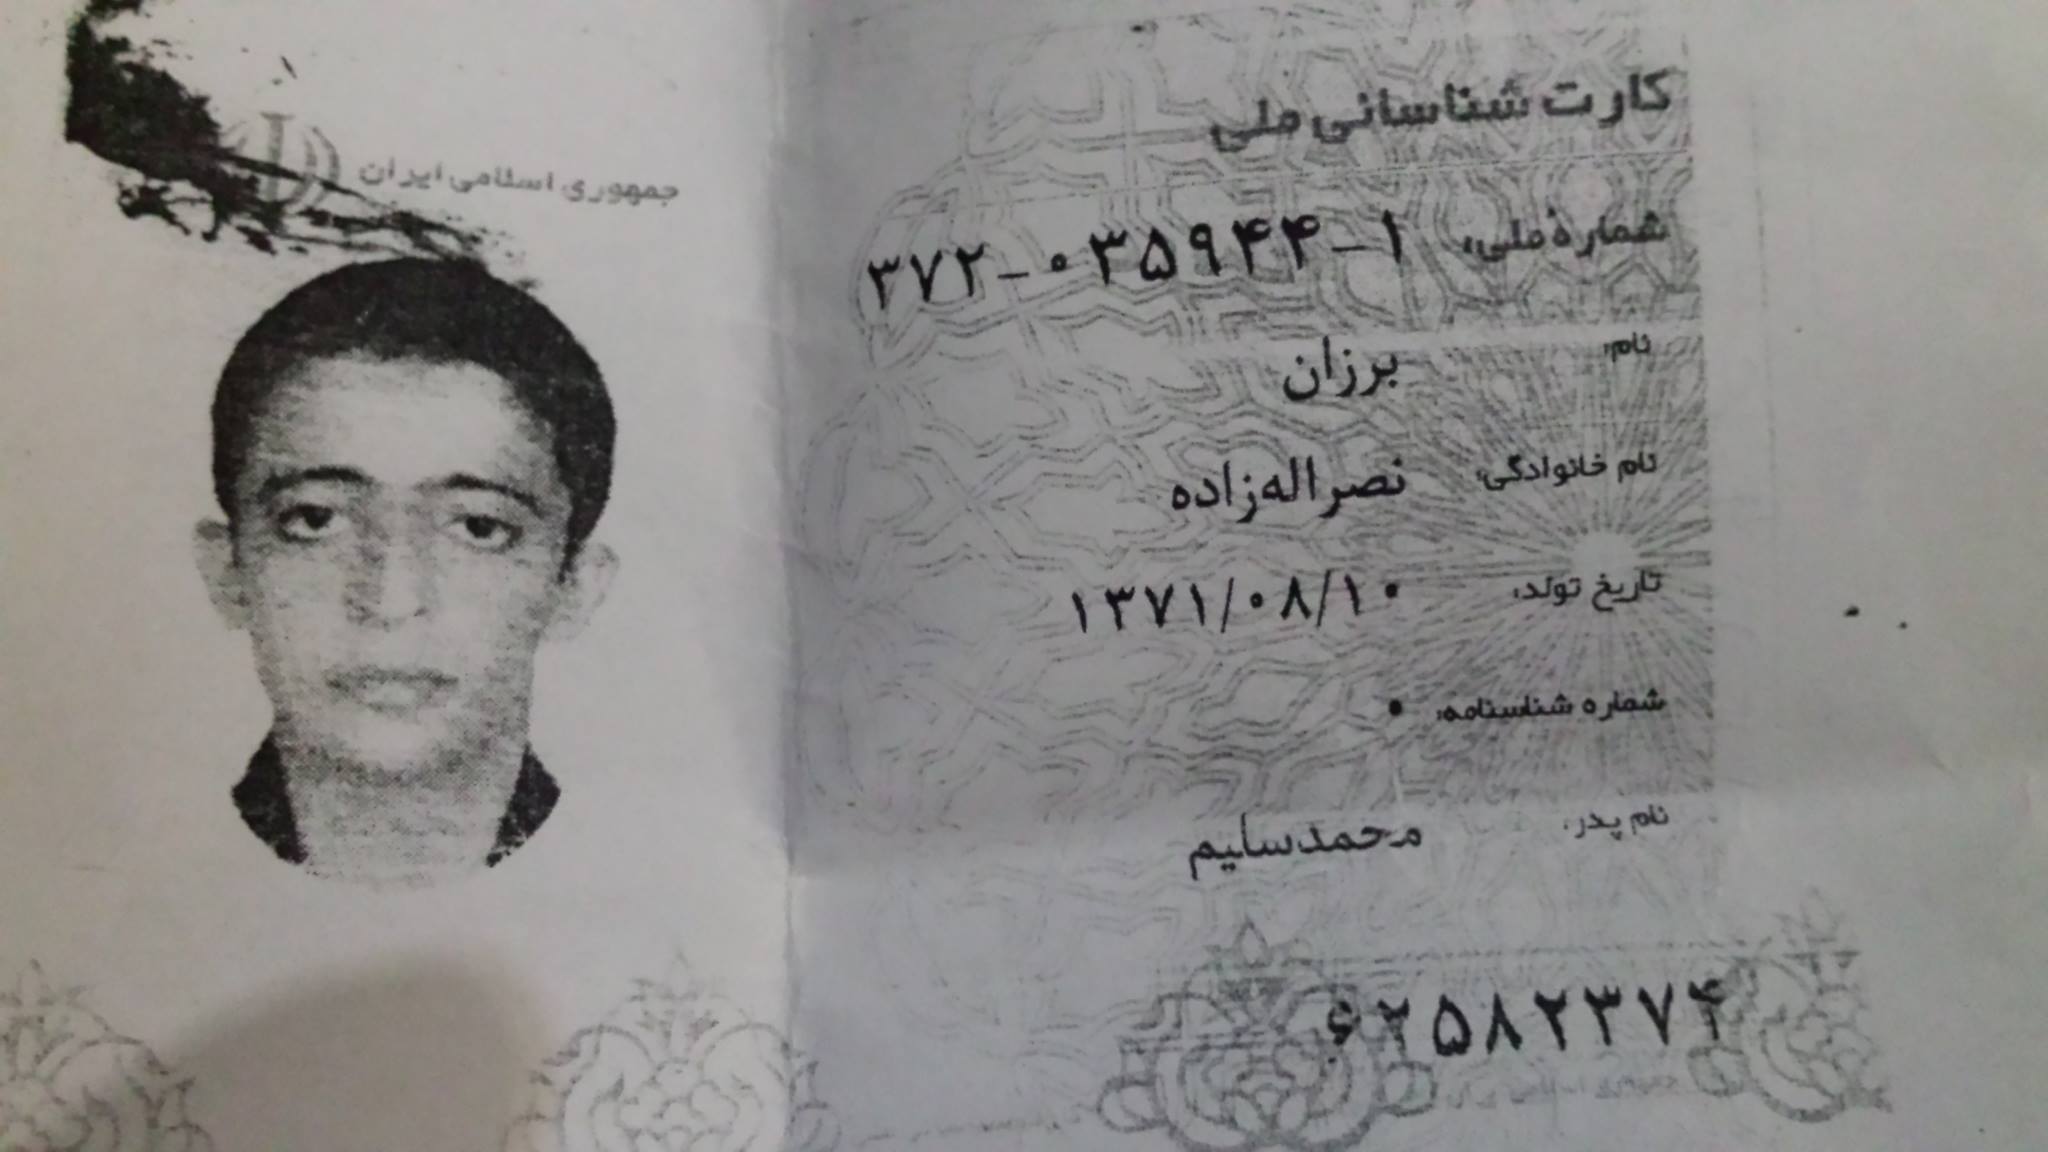 جمهوری اسلامی ایران
کارت شناسائی ملی
شمارهٔ ملی: ۳۷۲-۰۳۵۹۴۴-۱
نام: برزان
نام خانوادگی: نصراله‌زاده
تاریخ تولد: ۱۳۷۱/۰۸/۱۰
شماره شناسنامه: ۰
نام پدر: محمدسلیم
۶۲۵۸۲۳۷۴